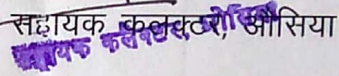 सहायक कलक्टर, औसिया
सहायक कलक्टर औसियां